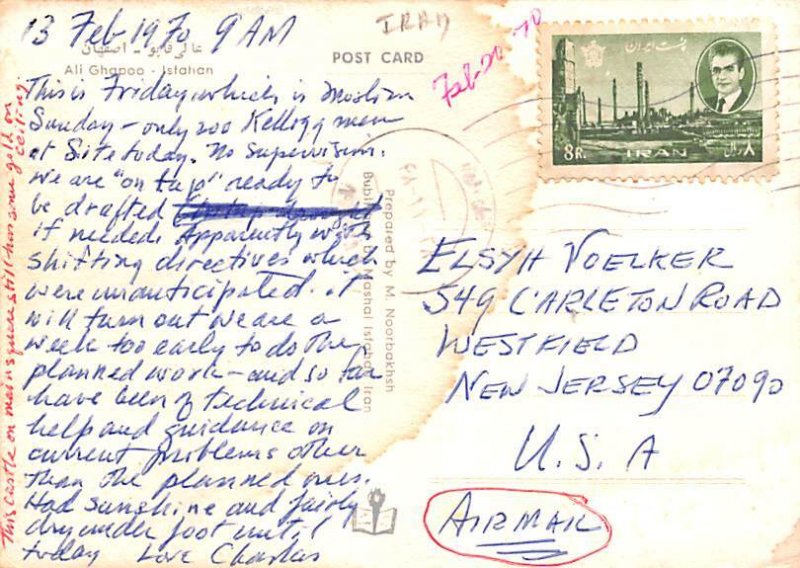 13 Feb 1970 9 AM
IRAN
Feb-20-70
عالی قاپو - اصفهان
Ali Ghapoo - Isfahan
POST CARD
This is Friday, which is Moslem
Sunday - only 200 Kellogg men
at Site today. No supervision.
We are "on tap" ready to
be drafted
if needed. Apparently with
shifting directives which
were unanticipated. it
will turn out we are a
week too early to do the
planned work - and so far
have been of technical
help and guidance on
current problems other
than the planned ones.
Had sunshine and fairly
dry under foot until
today Love Charles
This castle on main square still has some gold on
ceiling.
Prepared by M. Noorbakhsh
Mashal Isfahan Iran
پست ایران
8R.
IRAN
۸ریال
ELSYH VOELKER
549 CARLETON ROAD
WESTFIELD
NEW JERSEY 07090
U.S.A
AIRMAIL